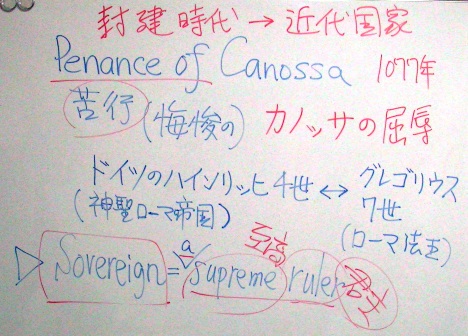 封建時代→近代国家
Penance of Canossa 1077年
苦行(悔悛の) カノッサの屈辱
ドイツのハインリッヒ4世↔グレゴリウス7世
(神聖ローマ帝国) (ローマ法王)
▷ Sovereign = a supreme ruler
至高 君主